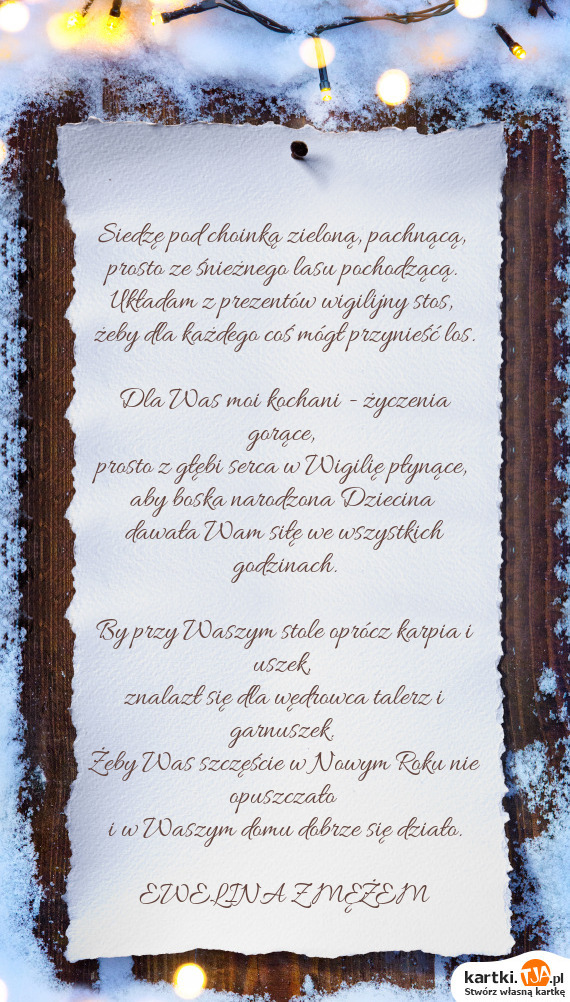 Siedzę pod choinką zieloną, pachnącą,
prosto ze śnieżnego lasu pochodzącą.
Układam z prezentów wigilijny stos,
żeby dla każdego coś mógł przynieść los.
Dla Was moi kochani - życzenia
gorące,
prosto z głębi serca w Wigilię płynące,
aby boska narodzona Dziecina
dawała Wam siłę we wszystkich
godzinach.
By przy Waszym stole oprócz karpia i
uszek,
znalazł się dla wędrowca talerz i
garnuszek.
Żeby Was szczęście w Nowym Roku nie
opuszczało
i w Waszym domu dobrze się działo.
EWELINA Z MĘŻEM
kartki.TJA.pl
Stwórz własną kartkę